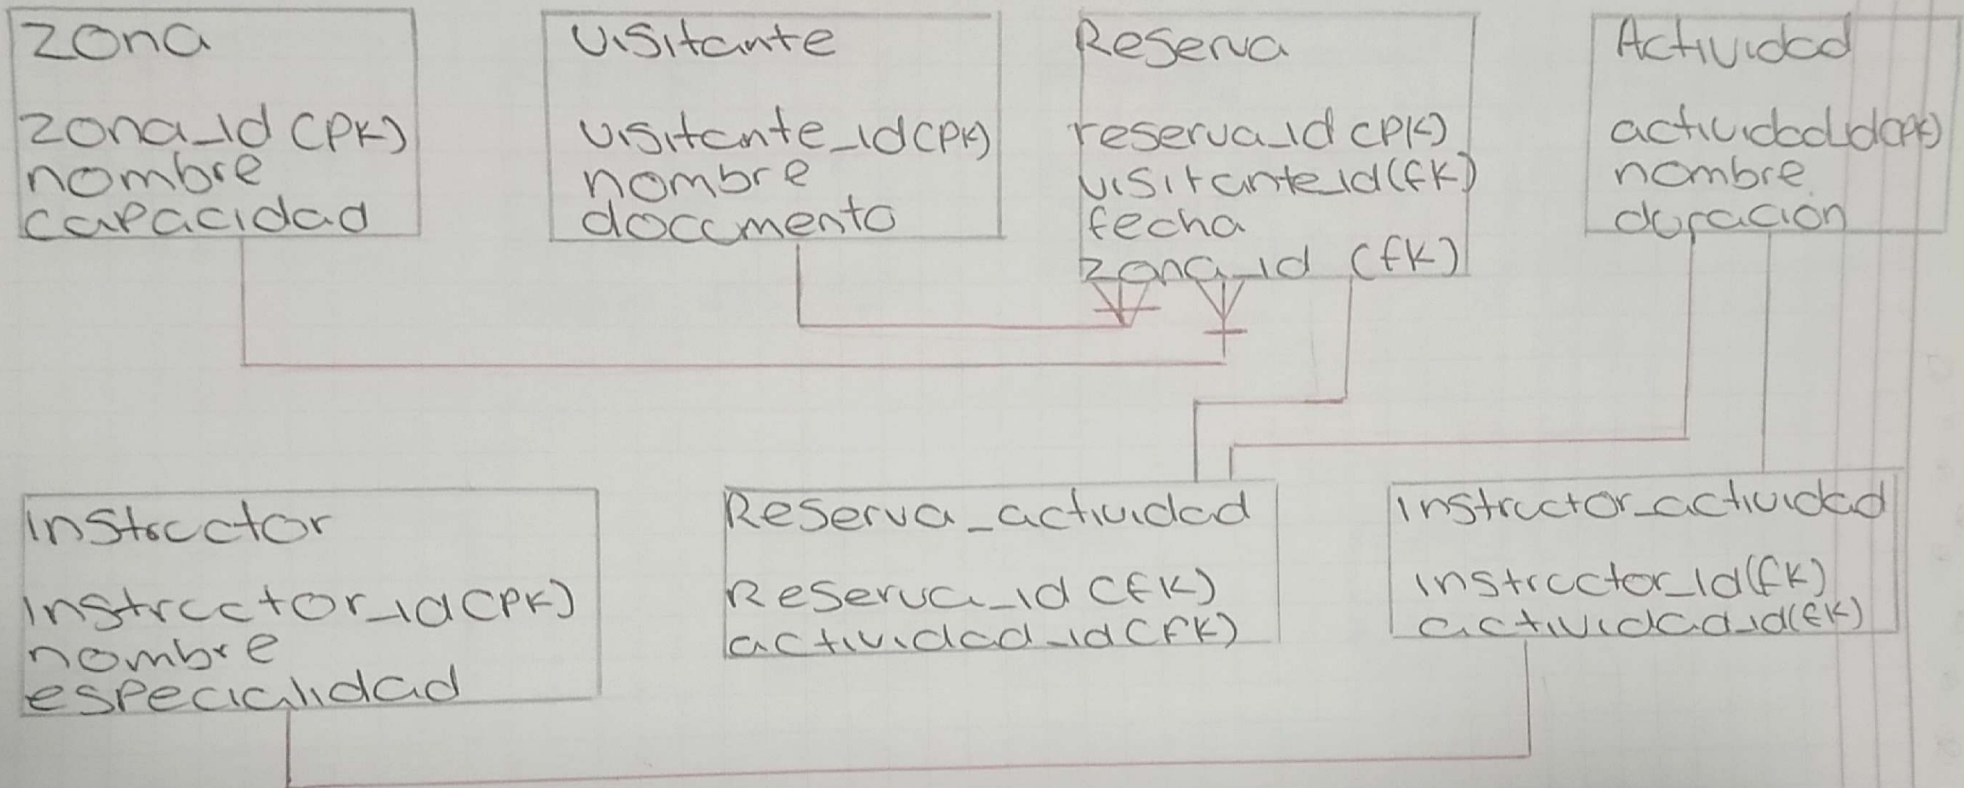 Zona
zona_id (PK)
nombre
capacidad
Visitante
visitante_id (PK)
nombre
documento
Reserva
reserva_id (PK)
visitante_id (fk)
fecha
zona_id (fk)
Actividad
actividad_id (PK)
nombre
duracion
Instructor
instructor_id (PK)
nombre
especialidad
Reserva_actividad
Reserva_id (fk)
actividad_id (fk)
instructor_actividad
instructor_id (fk)
actividad_id (fk)